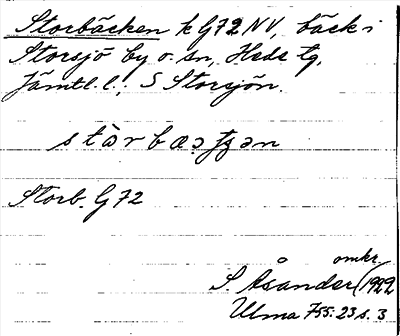 Storbäcken k G72 NV, bäck i
Storsjö by o. sn, Hede tg,
Jämtl. l.; S Storsjön.
Storb. G 72
omkr
S. Åsander (1922
Ulma 755:23 s. 3